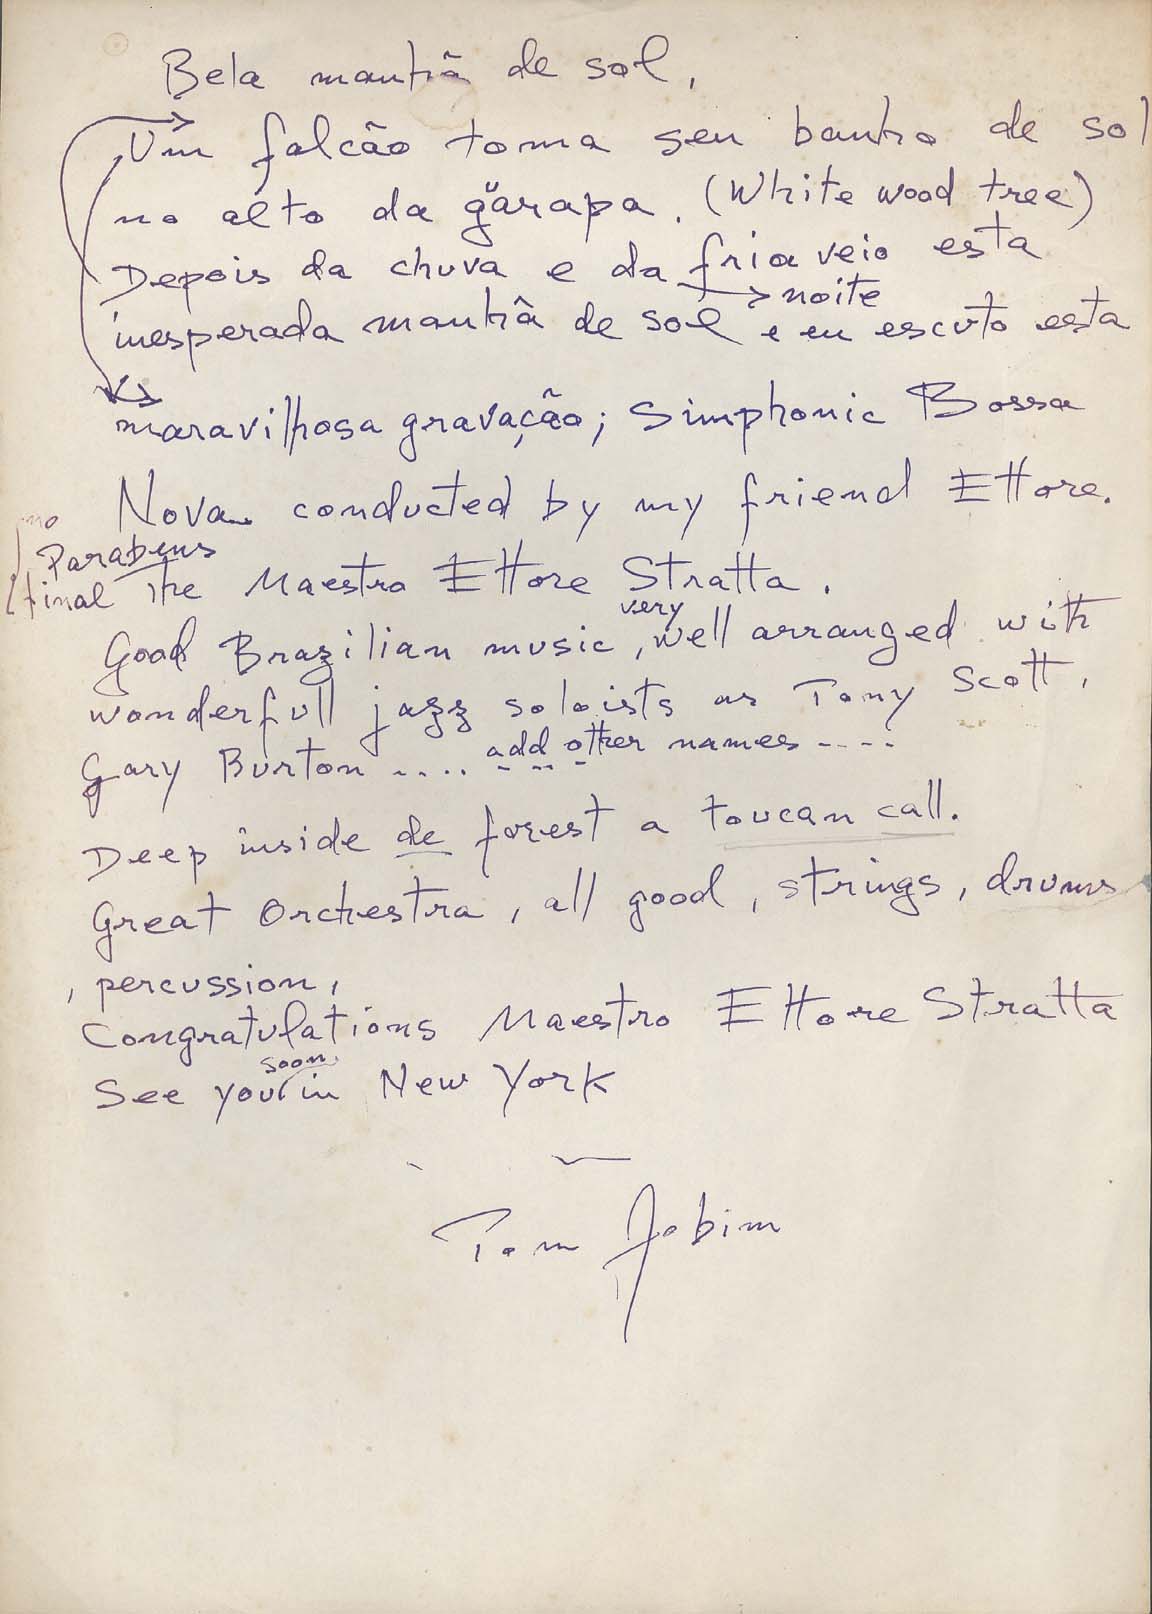 Bela manhã de sol,
Um falcão toma seu banho de sol
no alto da garapa. (White wood tree)
Depois da chuva e da fria veio esta
noite
inesperada manhã de sol e eu escuto esta
maravilhosa gravação; Simphonic Bossa
Nova conducted by my friend Ettore.
no
Parabens
final
The Maestro Ettore Stratta.
very
Good Brazilian music, well arranged with
wonderfull jazz soloists as Tony Scott,
Gary Burton .... add other names ....
Deep inside de forest a toucan call.
Great Orchestra, all good, strings, drums
, percussion,
Congratulations Maestro Ettore Stratta
soon
See you in New York
Tom Jobim